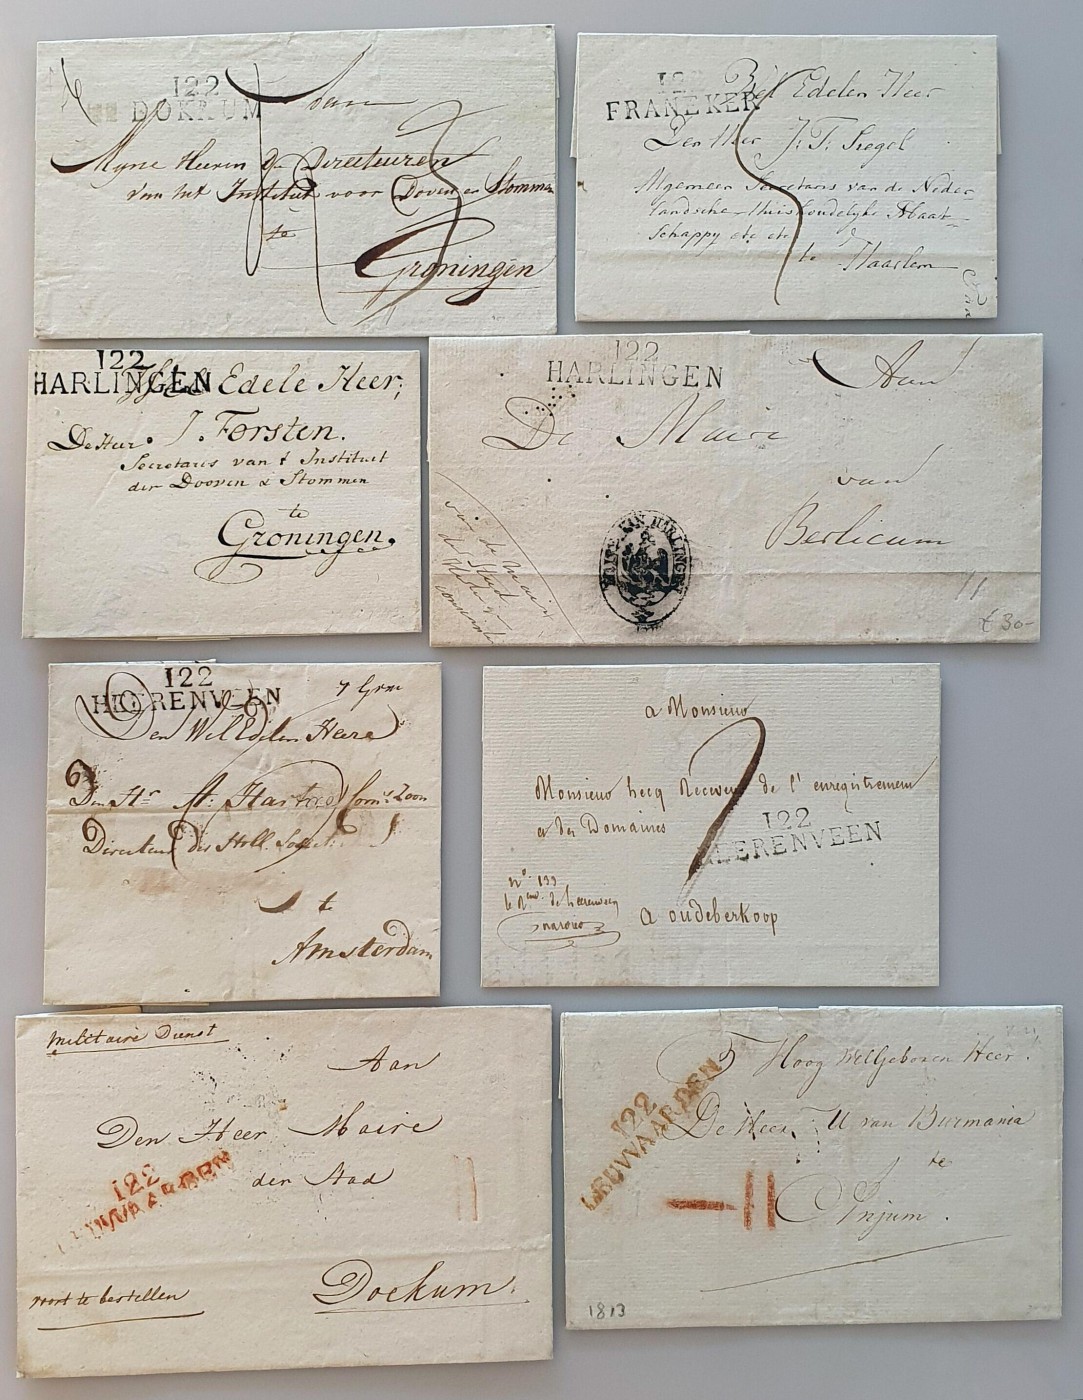 122
DOKKUM
Aan
Myne Heeren de Directeuren
van het Instituut voor Doven en Stommen
te
Groningen
122
FRANEKER
Wel Edelen Heer
Den Heer J: T: Siegel
Algemeen Secretaris van de Neder-
landsche Huishoudelyke Maat-
schappy etc etc
te Haarlem
122
HARLINGEN
Wel Edele Heer,
De Heer J. Forsten.
Secretaris van t Instituut
der Dooven & Stommen
te
Groningen.
122
HARLINGEN
Aan
De Maire
van
Berlicum
MAIRE VAN HARLINGEN
van de Maire
der Stad
£ 30-
122
HEERENVEEN
7 Grm
Den WelEdelen Heere
Den Hr
Directeur der Holl. Societ:
te
Amsterdam
a Monsieur
Monsieur hecq Receveur de l'enregistrement
et des Domaines
122
HEERENVEEN
No. 199
le Receur de heerenveen
a oudeberkoop
Militaire Dienst
Aan
Den Heer Maire
der Stad
122
LEUWAARDEN
Dockum.
voort te bestellen
Hoog WelGeboren Heer.
122
LEUWAARDEN
De Heer U van Burmania
te
Anjum.
1813